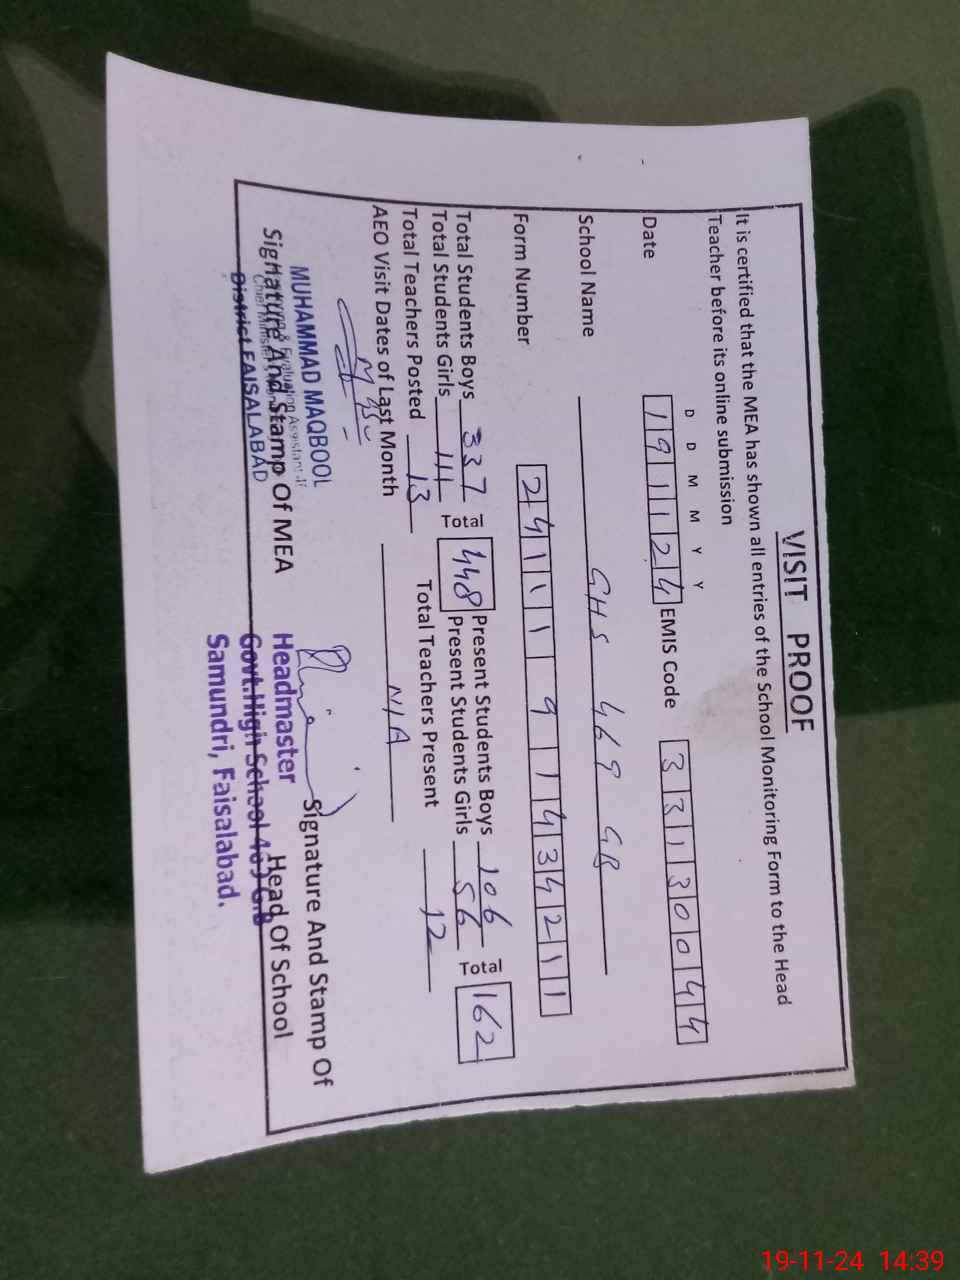 VISIT PROOF
It is certified that the MEA has shown all entries of the School Monitoring Form to the Head
Teacher before its online submission
D D M M Y Y
Date 191124 EMIS Code 33130044
School Name GHS 469 GB
Form Number 2411191434211
Total Students Boys 337 Present Students Boys 106
Total Students Girls 111 Total 448 Present Students Girls 56 Total 162
Total Teachers Posted 13 Total Teachers Present 12
AEO Visit Dates of Last Month N/A
MUHAMMAD MAQBOOL
& Evaluation Assistant
Chief Minister's
District FAISALABAD
Signature And Stamp Of MEA
Signature And Stamp Of
Head Of School
Headmaster
Govt.High School 469 G.B
Samundri, Faisalabad.
19-11-24 14:39